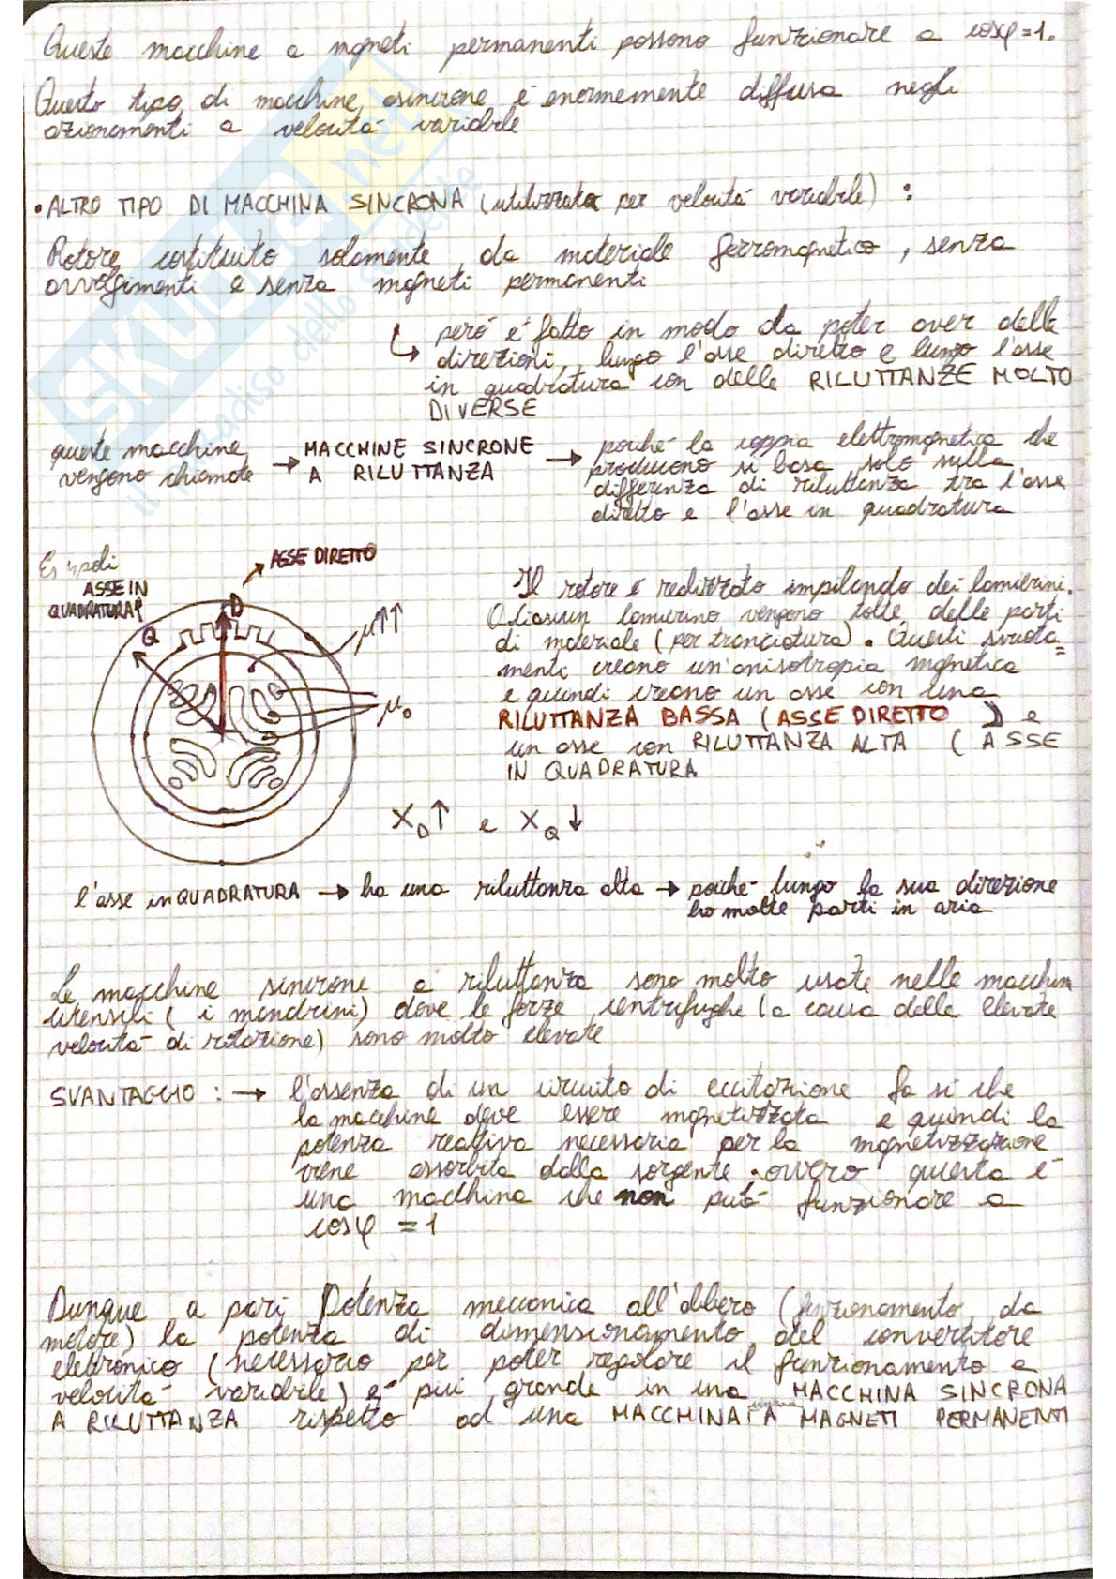 Queste macchine a mgneti permanenti possono funzionare a cosφ=1.
Questo tipo di macchine asincrone è enormemente diffusa negli
azionamenti a velocità variabile
• ALTRO TIPO DI MACCHINA SINCRONA (utilizzata per velocità variabile) :
Rotore costituito solamente da materiale ferromagnetico, senza
avvolgimenti e senza mgneti permanenti
↳ però è fatto in modo da poter aver delle
direzioni, lungo l'asse diretto e lungo l'asse
in quadratura con delle RILUTTANZE MOLTO
DIVERSE
queste macchine
vengono chiamate
→ MACCHINE SINCRONE
A RILUTTANZA
→ poiché la coppia elettromagnetica che
producono si basa solo sulla
differenza di riluttanza tra l'asse
diretto e l'asse in quadratura
Es 4 poli
ASSE DIRETTO
ASSE IN
QUADRATURA
D
Q
μ↑↑
μ₀
Il rotore è realizzato impilando dei lamierini.
A ciascun lamierino vengono tolte delle parti
di materiale (per tranciatura). Questi svuota=
menti creano un'anisotropia mgnetica
e quindi creano un asse con una
RILUTTANZA BASSA (ASSE DIRETTO) e
un asse con RILUTTANZA ALTA (ASSE
IN QUADRATURA
X_D↑ e X_Q↓
l'asse in QUADRATURA → ha una riluttanza alta → poiché lungo la sua direzione
ho molte parti in aria
Le macchine sincrone a riluttanza sono molto usate nelle macchine
utensili (i mandrini) dove le forze centrifughe (a causa delle elevate
velocità di rotazione) sono molto elevate
SVANTAGGIO : → l'assenza di un circuito di eccitazione fa sì che
la macchina deve essere mgnetizzata e quindi la
potenza reattiva necessaria per la mgnetizzazione
viene assorbita dalla sorgente. ovvero questa è
una macchina che non può funzionare a
cosφ = 1
Dunque a pari Potenza meccanica all'albero (funzionamento da
motore) la potenza di dimensionamento del convertitore
elettronico (necessario per poter regolare il funzionamento a
velocità variabile) è più grande in una MACCHINA SINCRONA
A RILUTTANZA rispetto ad una MACCHINA A MAGNETI PERMANENTI